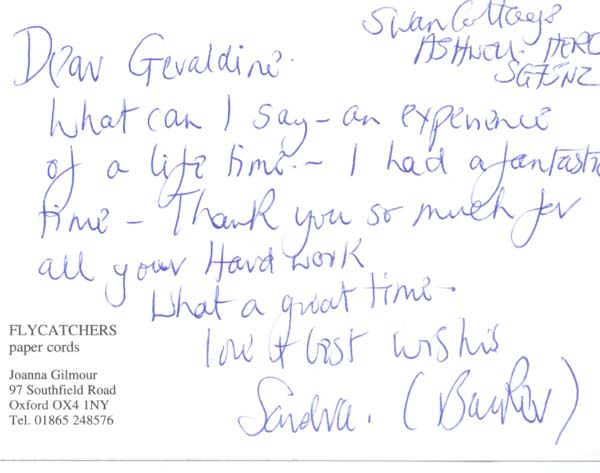 Swan Cottage
ASHWELL. HERT
SG7 5NZ
Dear Geraldine.
What can I say - an experience
of a life time. - I had a fantastic
time - Thank you so much for
all your Hard work
What a great time -
love & best wishes
Sandra. (
FLYCATCHERS
paper cords
Joanna Gilmour
97 Southfield Road
Oxford OX4 1NY
Tel. 01865 248576